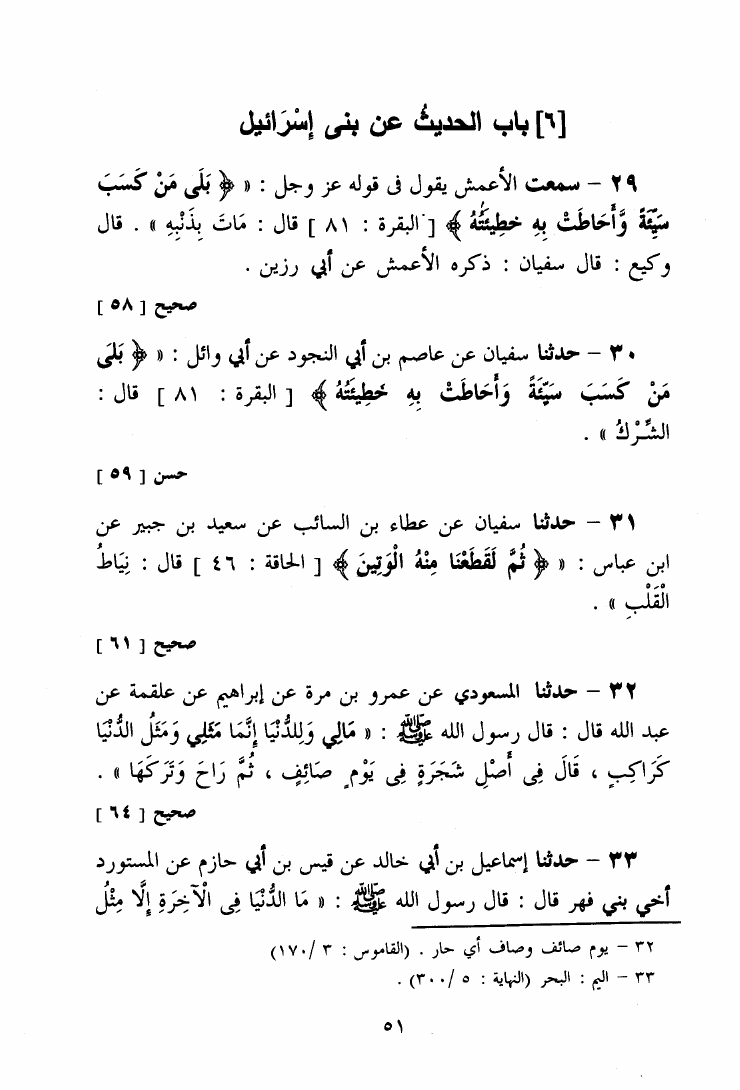 [٦] باب الحديثُ عن بنى إِسْرَائيل
٢٩ – سمعت الأعمش يقول فى قوله عز وجل : « ﴿ بَلَى مَنْ كَسَبَ
سَيِّئَةً وَّأَحَاطَتْ بِهِ خطِيئَتُهُ ﴾ [ البقرة : ٨١ ] قال : مَاتَ بِذَنْبِهِ » . قال
وكيع : قال سفيان : ذكره الأعمش عن أبي رزين .
صحيح [ ٥٨ ]
٣٠ – حدثنا سفيان عن عاصم بن أبي النجود عن أبي وائل : « ﴿ بَلَى
مَنْ كَسَبَ سَيِّئَةً وَأَحَاطَتْ بِهِ خَطِيئَتُهُ ﴾ [ البقرة : ٨١ ] قال :
الشِّرْكُ » .
حسن [ ٥٩ ]
٣١ – حدثنا سفيان عن عطاء بن السائب عن سعيد بن جبير عن
ابن عباس : « ﴿ ثُمَّ لَقَطَعْنَا مِنْهُ الْوَتِينَ ﴾ [ الحاقة : ٤٦ ] قال : نِيَاطُ
الْقَلْبِ » .
صحيح [ ٦١ ]
٣٢ – حدثنا المسعودي عن عمرو بن مرة عن إبراهيم عن علقمة عن
عبد الله قال : قال رسول الله ﷺ : « مَالِي وَلِلدُّنْيَا إِنَّمَا مَثَلِي وَمَثَلُ الدُّنْيَا
كَرَاكِبٍ ، قَالَ فِى أَصْلِ شَجَرَةٍ فِى يَوْمٍ صَائِفٍ ، ثُمَّ رَاحَ وَتَرَكَهَا » .
صحيح [ ٦٤ ]
٣٣ – حدثنا إسماعيل بن أبي خالد عن قيس بن أبي حازم عن المستورد
أخي بني فهر قال : قال رسول الله ﷺ : « مَا الدُّنْيَا فِى الْآخِرَةِ إِلَّا مِثْلُ
٣٢ – يوم صائف وصاف أي حار . (القاموس : ٣ /١٧٠)
٣٣ – اليم : البحر (النهاية : ٥ /٣٠٠) .
٥١